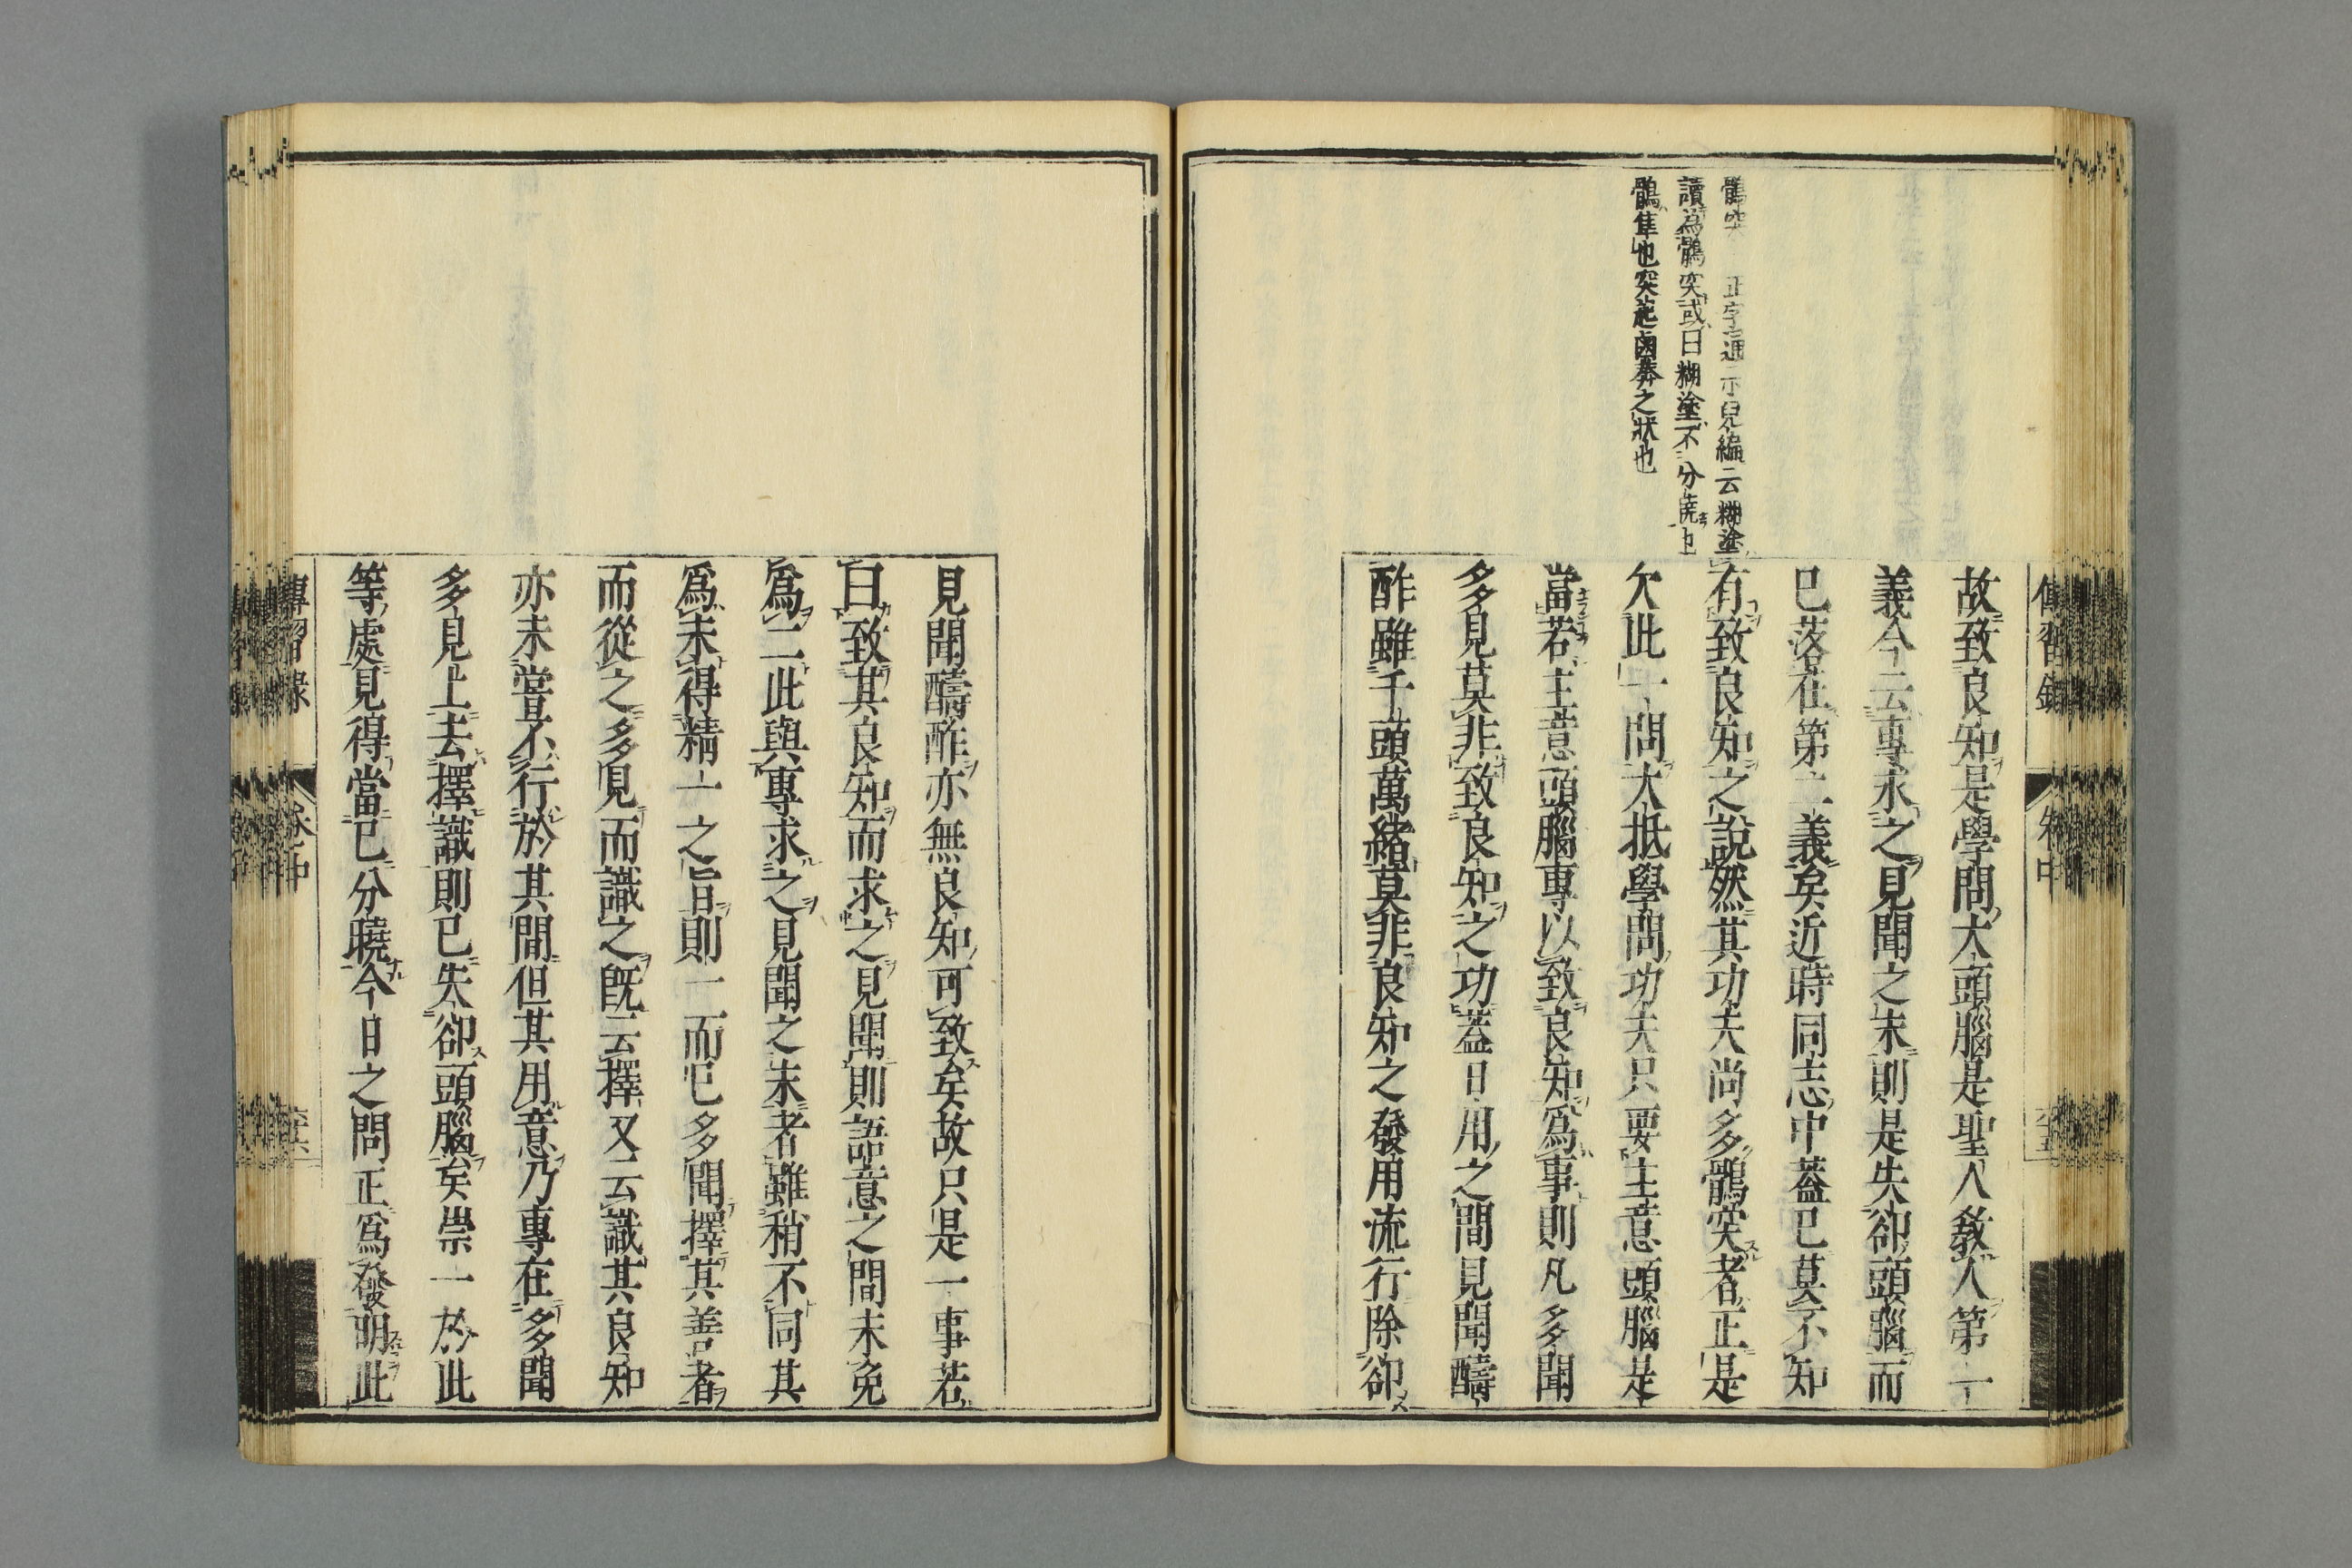 鶻突 正字通示兒編云糊塗
讀爲鶻突或曰糊塗不分曉也
鶻隼也突起鹵莽之狀也
故致良知是學問大頭腦是聖人敎人第一
義今云專求之見聞之末則是失卻頭腦而
已落在第二義矣近時同志中葢已莫不知
有致良知之說然其功夫尚多鶻突者正是
欠此一問大抵學問功夫只要主意頭腦是
當若主意頭腦專以致良知爲事則凡多聞
多見莫非致良知之功葢日用之間見聞醻
酢雖千頭萬緒莫非良知之發用流行除卻
傳習錄 卷中
見聞醻酢亦無良知可致矣故只是一事若
曰致其良知而求之見聞則語意之間未免
爲二此與專求之見聞之末者雖稍不同其
爲未得精一之旨則一而已多聞擇其善者
而從之多見而識之旣云擇又云識其良知
亦未嘗不行於其間但其用意乃專在多聞
多見上去擇識則已失卻頭腦矣崇一於此
等處見得當已分曉今日之問正爲發明此
傳習錄 卷中 六十六